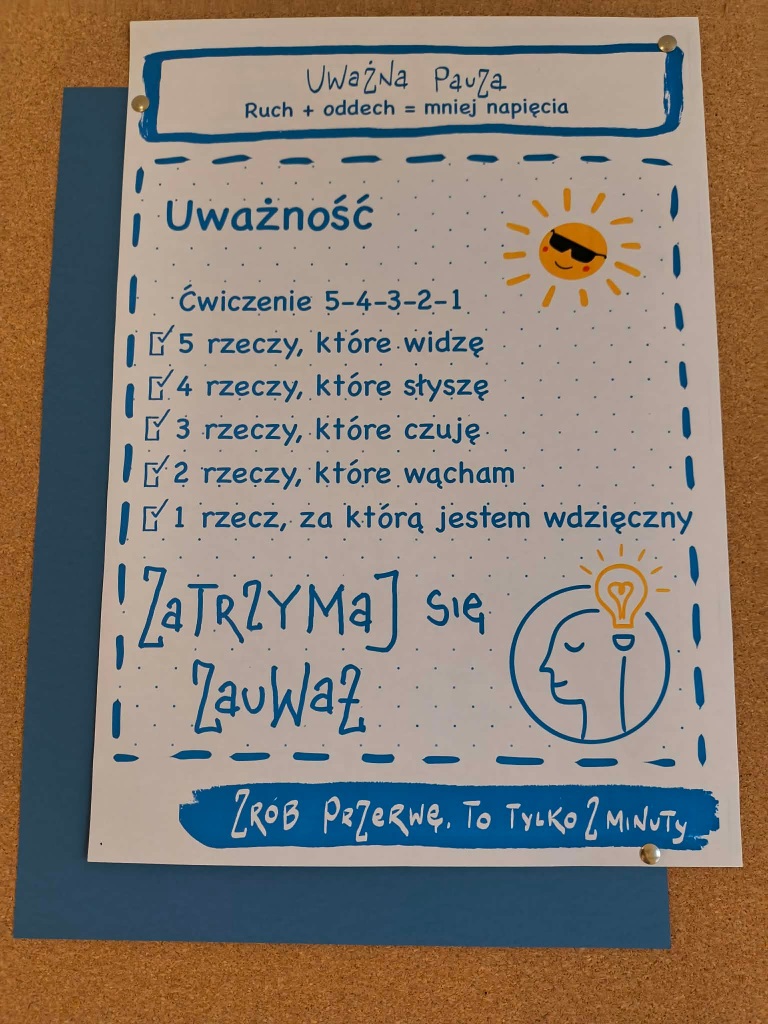 Uważna Pauza
Ruch + oddech = mniej napięcia
Uważność
Ćwiczenie 5-4-3-2-1
5 rzeczy, które widzę
4 rzeczy, które słyszę
3 rzeczy, które czuję
2 rzeczy, które wącham
1 rzecz, za którą jestem wdzięczny
Zatrzymaj się
zauważ
Zrób przerwę. To tylko 2 minuty